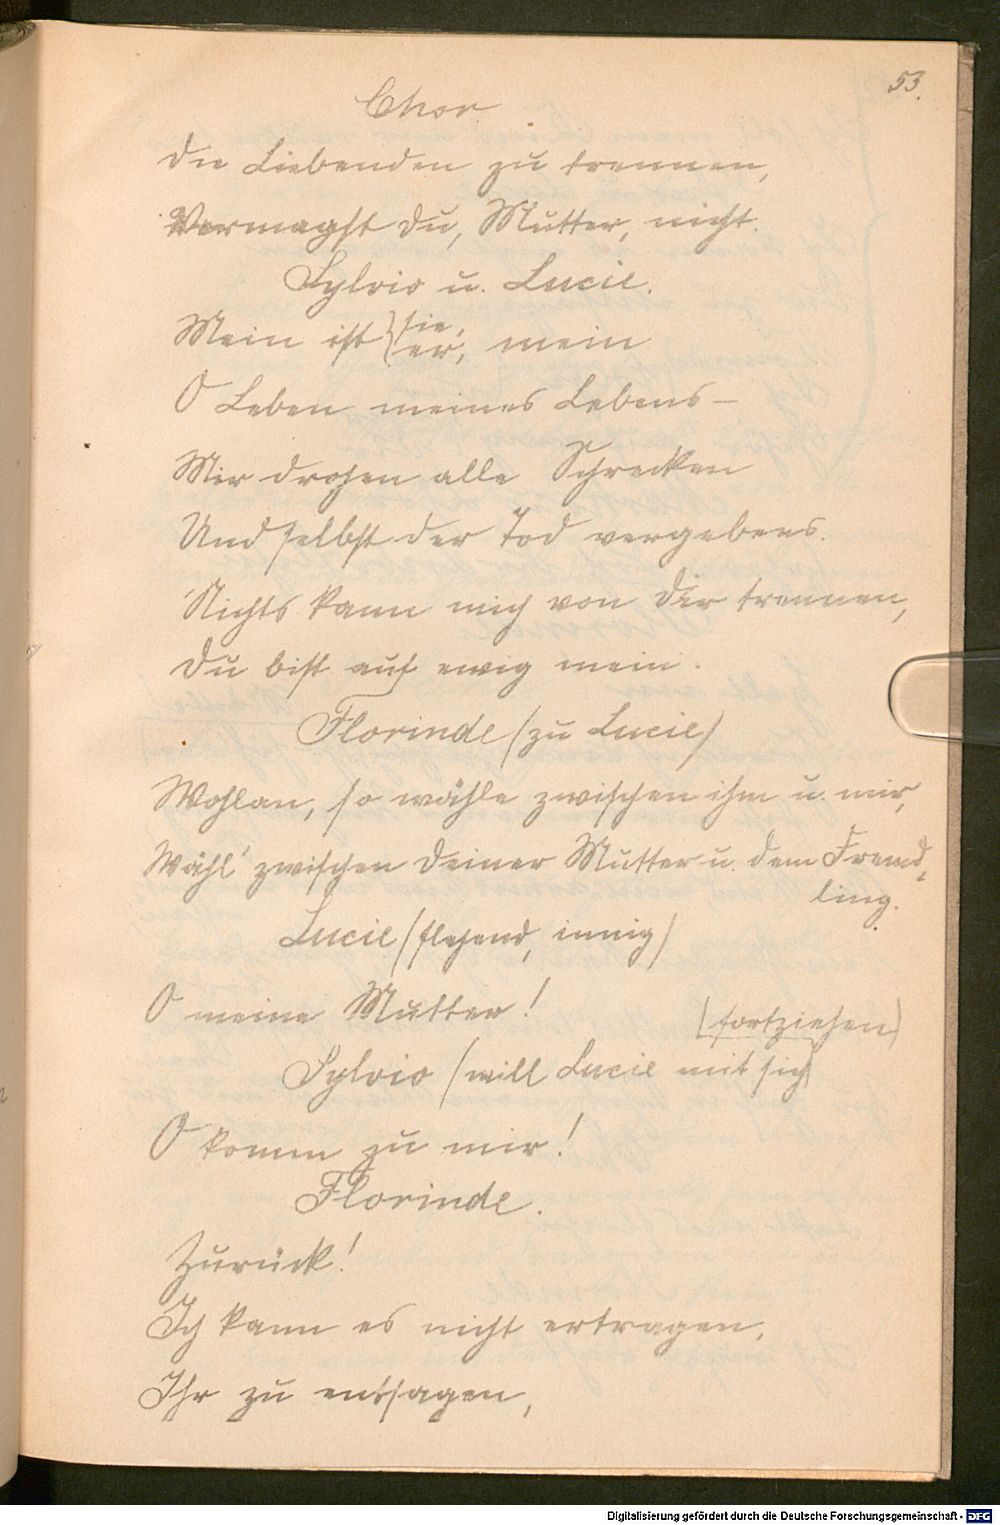 53.
Chor
Die Liebenden zu trennen,
Vermagst du, Mutter, nicht.
Sylvio u. Lucie.
Mein ist { sie, er, mein
O Leben meines Lebens –
Mir drohen alle Schrecken
Und selbst der Tod vergebens.
Nichts kann mich von Dir trennen,
Du bist auf ewig mein.
Florinde (zu Lucie)
Wohlan, so wähle zwischen ihm u. mir,
Wähl' zwischen Deiner Mutter u. dem Fremd-
ling.
Lucie (flehend, innig)
O meine Mutter!
(fortziehen)
Sylvio (will Lucie mit sich
O komm zu mir!
Florinde.
Zurück!
Ich kann es nicht ertragen,
Ihr zu entsagen,
Digitalisierung gefördert durch die Deutsche Forschungsgemeinschaft - DFG